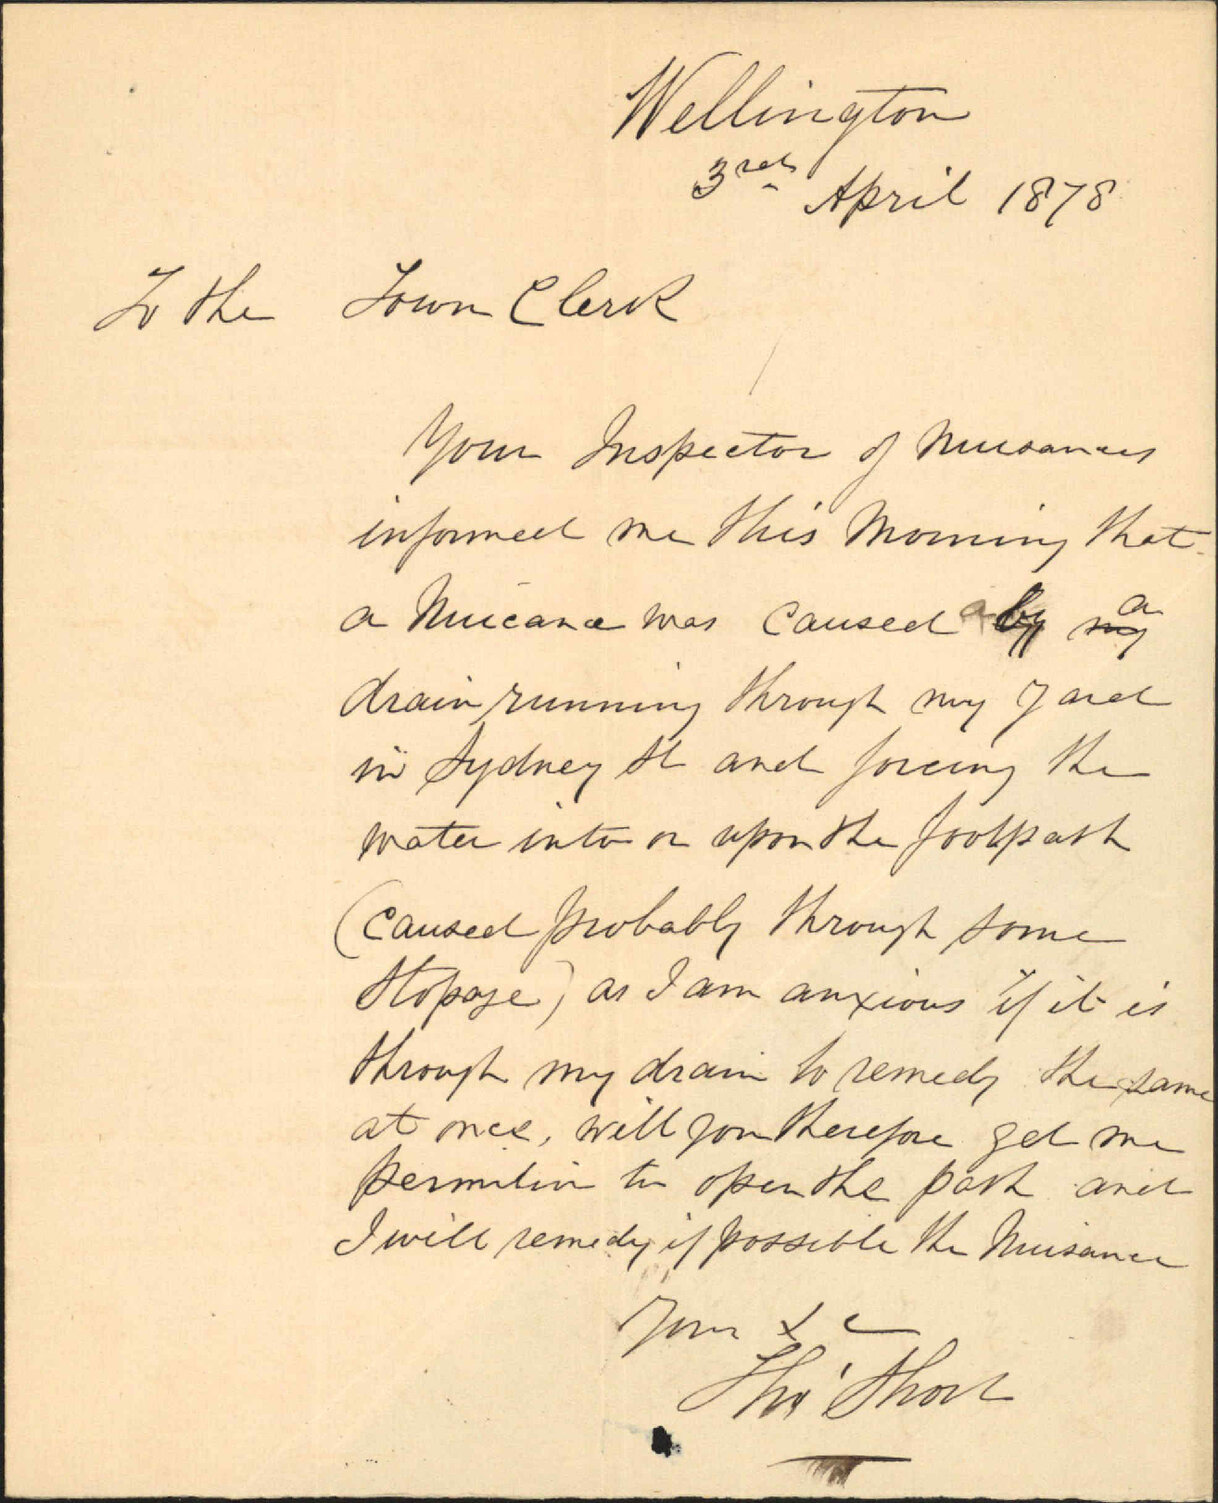 Wellington
3rd April 1878
To the Town Clerk
Your Inspector of Nuisances
informed me this Morning that
a Nuicance was caused by my a
drain running through my yard
in Sydney St and forcing the
water into or upon the footpath
(caused probably through some
stopage) as I am anxious if it is
through my drain to remedy the same
at once, will you therefore get me
permition to open the path and
I will remedy if possible the Nuisance
Yours &c
Thos Short